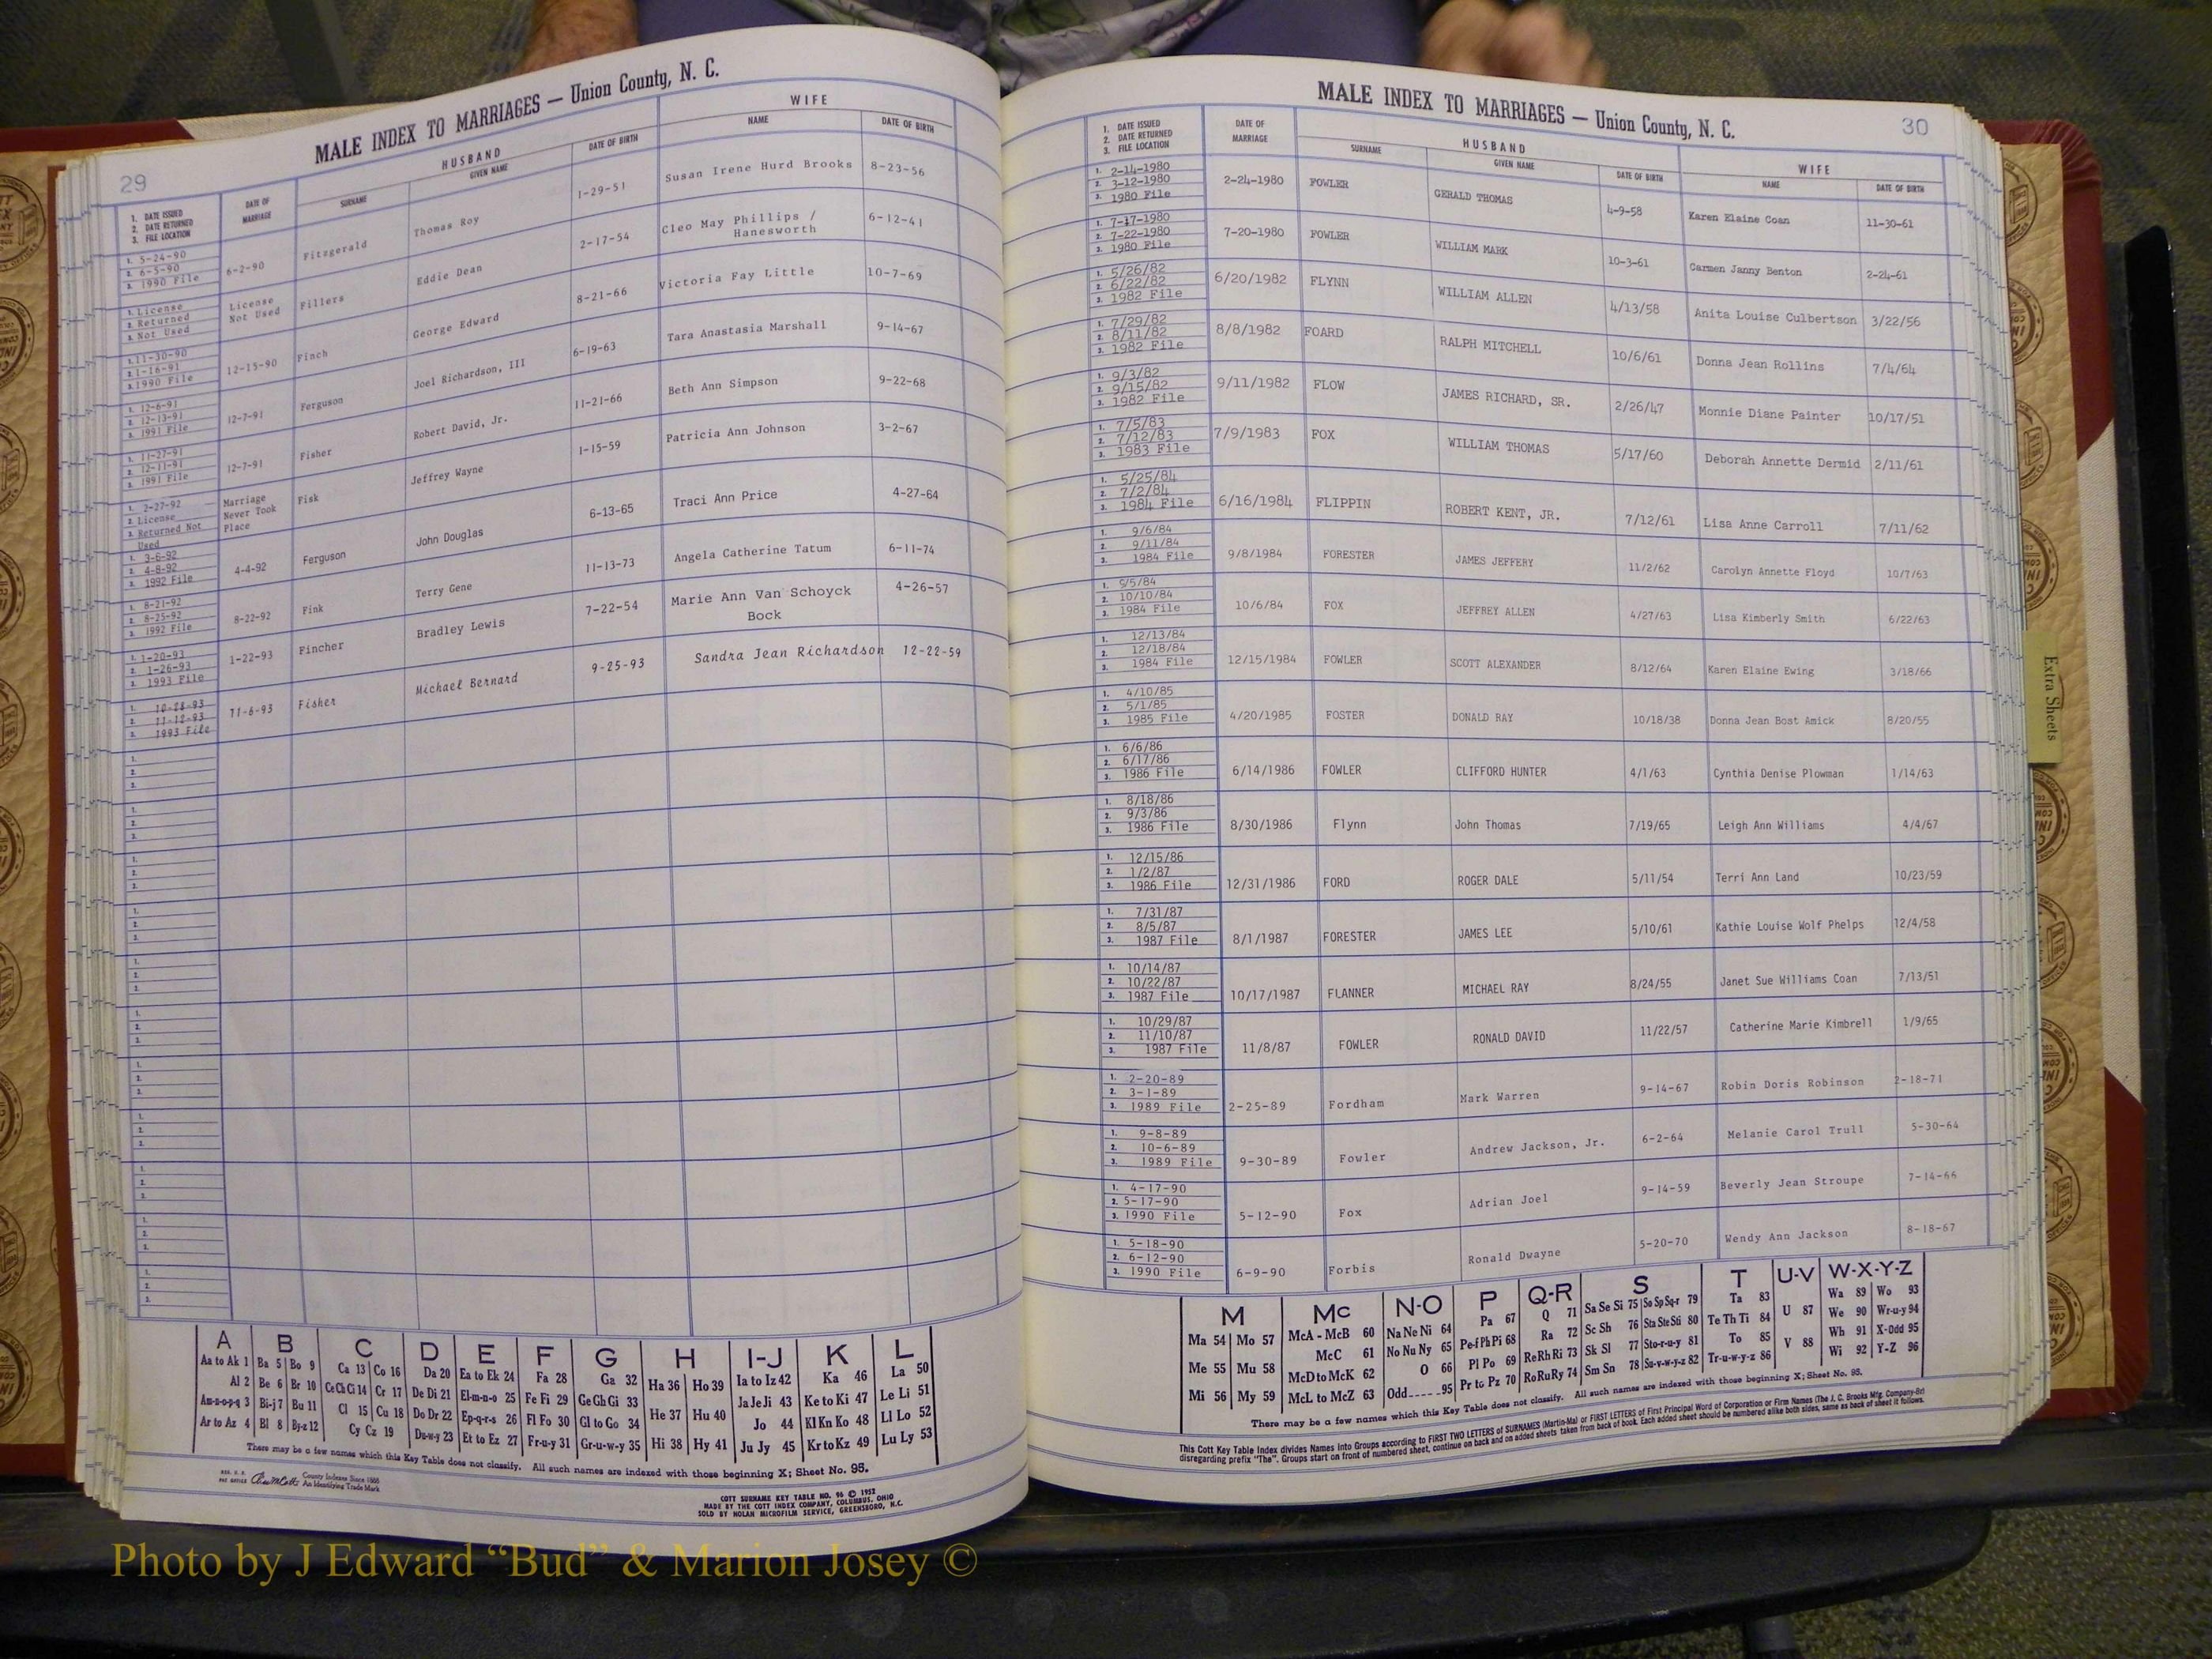 29
MALE INDEX TO MARRIAGES — Union County, N. C.
HUSBAND WIFE
1. DATE ISSUED 2. DATE RETURNED 3. FILE LOCATION DATE OF MARRIAGE SURNAME GIVEN NAME DATE OF BIRTH NAME DATE OF BIRTH
1. 5-24-90
2. 6-5-90
3. 1990 File 6-2-90 Fitzgerald Thomas Roy 1-29-51 Susan Irene Hurd Brooks 8-23-56
1. License
2. Returned
3. Not Used License Not Used Fillers Eddie Dean 2-17-54 Cleo May Phillips / Hanesworth 6-12-41
1. 11-30-90
2. 1-16-91
3. 1990 File 12-15-90 Finch George Edward 8-21-66 Victoria Fay Little 10-7-69
1. 12-6-91
2. 12-13-91
3. 1991 File 12-7-91 Ferguson Joel Richardson, III 6-19-63 Tara Anastasia Marshall 9-14-67
1. 11-27-91
2. 12-11-91
3. 1991 File 12-7-91 Fisher Robert David, Jr. 11-21-66 Beth Ann Simpson 9-22-68
1. 2-27-92
2. License
3. Returned Not Used Marriage Never Took Place Fisk Jeffrey Wayne 1-15-59 Patricia Ann Johnson 3-2-67
1. 3-6-92
2. 4-8-92
3. 1992 File 4-4-92 Ferguson John Douglas 6-13-65 Traci Ann Price 4-27-64
1. 8-21-92
2. 8-25-92
3. 1992 File 8-22-92 Fink Terry Gene 11-13-73 Angela Catherine Tatum 6-11-74
1. 1-20-93
2. 1-26-93
3. 1993 File 1-22-93 Fincher Bradley Lewis 7-22-54 Marie Ann Van Schoyck Bock 4-26-57
1. 10-28-93
2. 11-12-93
3. 1993 File 11-6-93 Fisher Michael Bernard 9-25-93 Sandra Jean Richardson 12-22-59
A B C D E F G H I-J K L
Aa to Ak 1 Ba 5 Bo 9 Ca 13 Co 16 Da 20 Ea to Ek 24 Fa 28 Ga 32 Ha 36 Ho 39 Ia to Iz 42 Ka 46 La 50
Al 2 Be 6 Br 10 Ce Ch Ci 14 Cr 17 De Di 21 El-m-n-o 25 Fe Fi 29 Ge Gh Gi 33 He 37 Hu 40 Ja Je Ji 43 Ke to Ki 47 Le Li 51
Am-n-o-p-q 3 Bi-j 7 Bu 11 Cl 15 Cu 18 Do Dr 22 Ep-q-r-s 26 Fl Fo 30 Gl to Go 34 Jo 44 Kl Kn Ko 48 Ll Lo 52
Ar to Az 4 Bl 8 Bj-z 12 Cy Cz 19 Du-w-y 23 Et to Ez 27 Fr-u-y 31 Gr-u-w-y 35 Hi 38 Hy 41 Ju Jy 45 Kr to Kz 49 Lu Ly 53
There may be a few names which this Key Table does not classify. All such names are indexed with those beginning X; Sheet No. 95.
REG. U. S. PAT. OFFICE County Indexes Since 1888
An Identifying Trade Mark
COTT SURNAME KEY TABLE NO. 96 © 1952
MADE BY THE COTT INDEX COMPANY, COLUMBUS, OHIO
SOLD BY NOLAN MICROFILM SERVICE, GREENSBORO, N.C.
MALE INDEX TO MARRIAGES — Union County, N. C.
30
HUSBAND WIFE
1. DATE ISSUED 2. DATE RETURNED 3. FILE LOCATION DATE OF MARRIAGE SURNAME GIVEN NAME DATE OF BIRTH NAME DATE OF BIRTH
1. 2-14-1980
2. 3-12-1980
3. 1980 File 2-24-1980 FOWLER GERALD THOMAS 4-9-58 Karen Elaine Coan 11-30-61
1. 7-17-1980
2. 7-22-1980
3. 1980 File 7-20-1980 FOWLER WILLIAM MARK 10-3-61 Carmen Janny Benton 2-24-61
1. 5/26/82
2. 6/22/82
3. 1982 File 6/20/1982 FLYNN WILLIAM ALLEN 4/13/58 Anita Louise Culbertson 3/22/56
1. 7/29/82
2. 8/11/82
3. 1982 File 8/8/1982 FOARD RALPH MITCHELL 10/6/61 Donna Jean Rollins 7/4/64
1. 9/3/82
2. 9/15/82
3. 1982 File 9/11/1982 FLOW JAMES RICHARD, SR. 2/26/47 Monnie Diane Painter 10/17/51
1. 7/5/83
2. 7/12/83
3. 1983 File 7/9/1983 FOX WILLIAM THOMAS 5/17/60 Deborah Annette Dermid 2/11/61
1. 5/25/84
2. 7/2/84
3. 1984 File 6/16/1984 FLIPPIN ROBERT KENT, JR. 7/12/61 Lisa Anne Carroll 7/11/62
1. 9/6/84
2. 9/11/84
3. 1984 File 9/8/1984 FORESTER JAMES JEFFERY 11/2/62 Carolyn Annette Floyd 10/7/63
1. 9/5/84
2. 10/10/84
3. 1984 File 10/6/84 FOX JEFFREY ALLEN 4/27/63 Lisa Kimberly Smith 6/22/63
1. 12/13/84
2. 12/18/84
3. 1984 File 12/15/1984 FOWLER SCOTT ALEXANDER 8/12/64 Karen Elaine Ewing 3/18/66
1. 4/10/85
2. 5/1/85
3. 1985 File 4/20/1985 FOSTER DONALD RAY 10/18/38 Donna Jean Bost Amick 8/20/55
1. 6/6/86
2. 6/17/86
3. 1986 File 6/14/1986 FOWLER CLIFFORD HUNTER 4/1/63 Cynthia Denise Plowman 1/14/63
1. 8/18/86
2. 9/3/86
3. 1986 File 8/30/1986 Flynn John Thomas 7/19/65 Leigh Ann Williams 4/4/67
1. 12/15/86
2. 1/2/87
3. 1986 File 12/31/1986 FORD ROGER DALE 5/11/54 Terri Ann Land 10/23/59
1. 7/31/87
2. 8/5/87
3. 1987 File 8/1/1987 FORESTER JAMES LEE 5/10/61 Kathie Louise Wolf Phelps 12/4/58
1. 10/14/87
2. 10/22/87
3. 1987 File 10/17/1987 FLANNER MICHAEL RAY 8/24/55 Janet Sue Williams Coan 7/13/51
1. 10/29/87
2. 11/10/87
3. 1987 File 11/8/87 FOWLER RONALD DAVID 11/22/57 Catherine Marie Kimbrell 1/9/65
1. 2-20-89
2. 3-1-89
3. 1989 File 2-25-89 Fordham Mark Warren 9-14-67 Robin Doris Robinson 2-18-71
1. 9-8-89
2. 10-6-89
3. 1989 File 9-30-89 Fowler Andrew Jackson, Jr. 6-2-64 Melanie Carol Trull 5-30-64
1. 4-17-90
2. 5-17-90
3. 1990 File 5-12-90 Fox Adrian Joel 9-14-59 Beverly Jean Stroupe 7-14-66
1. 5-18-90
2. 6-12-90
3. 1990 File 6-9-90 Forbis Ronald Dwayne 5-20-70 Wendy Ann Jackson 8-18-67
M Mc N-O P Q-R S T U-V W-X-Y-Z
Ma 54 Mo 57 McA - McB 60 Na Ne Ni 64 Pa 67 Q 71 Sa Se Si 75 So Sp Sq-r 79 Ta 83 U 87 Wa 89 Wo 93
McC 61 No Nu Ny 65 Pe-f Ph Pi 68 Ra 72 Sc Sh 76 Sta Ste Sti 80 Te Th Ti 84 We 90 Wr-u-y 94
Me 55 Mu 58 McD to McK 62 O 66 Pl Po 69 Re Rh Ri 73 Sk Sl 77 Sto-r-u-y 81 To 85 V 88 Wh 91 X-Odd 95
Mi 56 My 59 McL to McZ 63 Odd 95 Pr to Pz 70 Ro Ru Ry 74 Sm Sn 78 Su-v-w-y-z 82 Tr-u-w-y-z 86 Wi 92 Y-Z 96
There may be a few names which this Key Table does not classify. All such names are indexed with those beginning X; Sheet No. 95.
This Cott Key Table Index divides Names into Groups according to FIRST TWO LETTERS of SURNAMES (Martin-Ma) or FIRST LETTERS of First Principal Word of Corporation or Firm Names (The J. C. Brooks Mfg. Company-Br)
disregarding prefix "The". Groups start on front of numbered sheet, continue on back and on added sheets taken from back of book. Each added sheet should be numbered alike both sides, same as back of sheet it follows.
Extra Sheets
Photo by J Edward “Bud” & Marion Josey ©